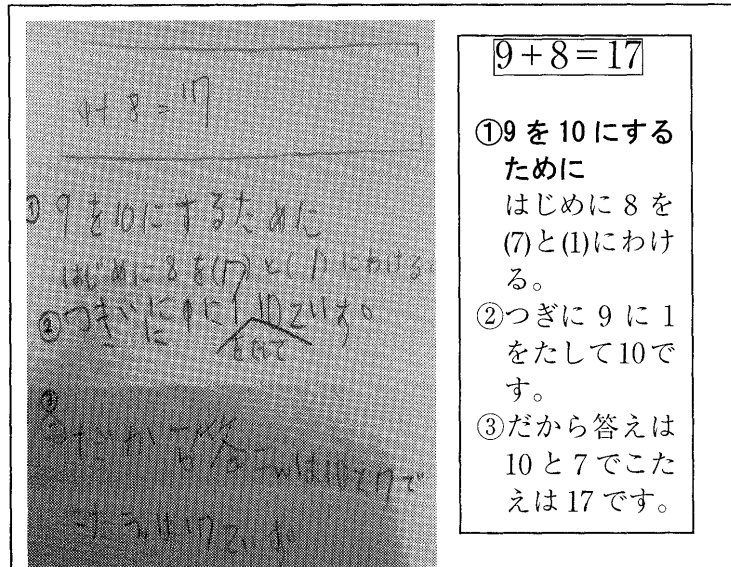 9+8=17
① 9を10にするために
はじめに8を(7)と(1)にわける
② つぎに9に1 10です。
をたして
③
だから
は10と7で
こたえは17です。
9+8=17
①9を10にする
ために
はじめに8を
(7)と(1)にわけ
る。
②つぎに9に1
をたして10で
す。
③だから答えは
10と7でこた
えは17です。